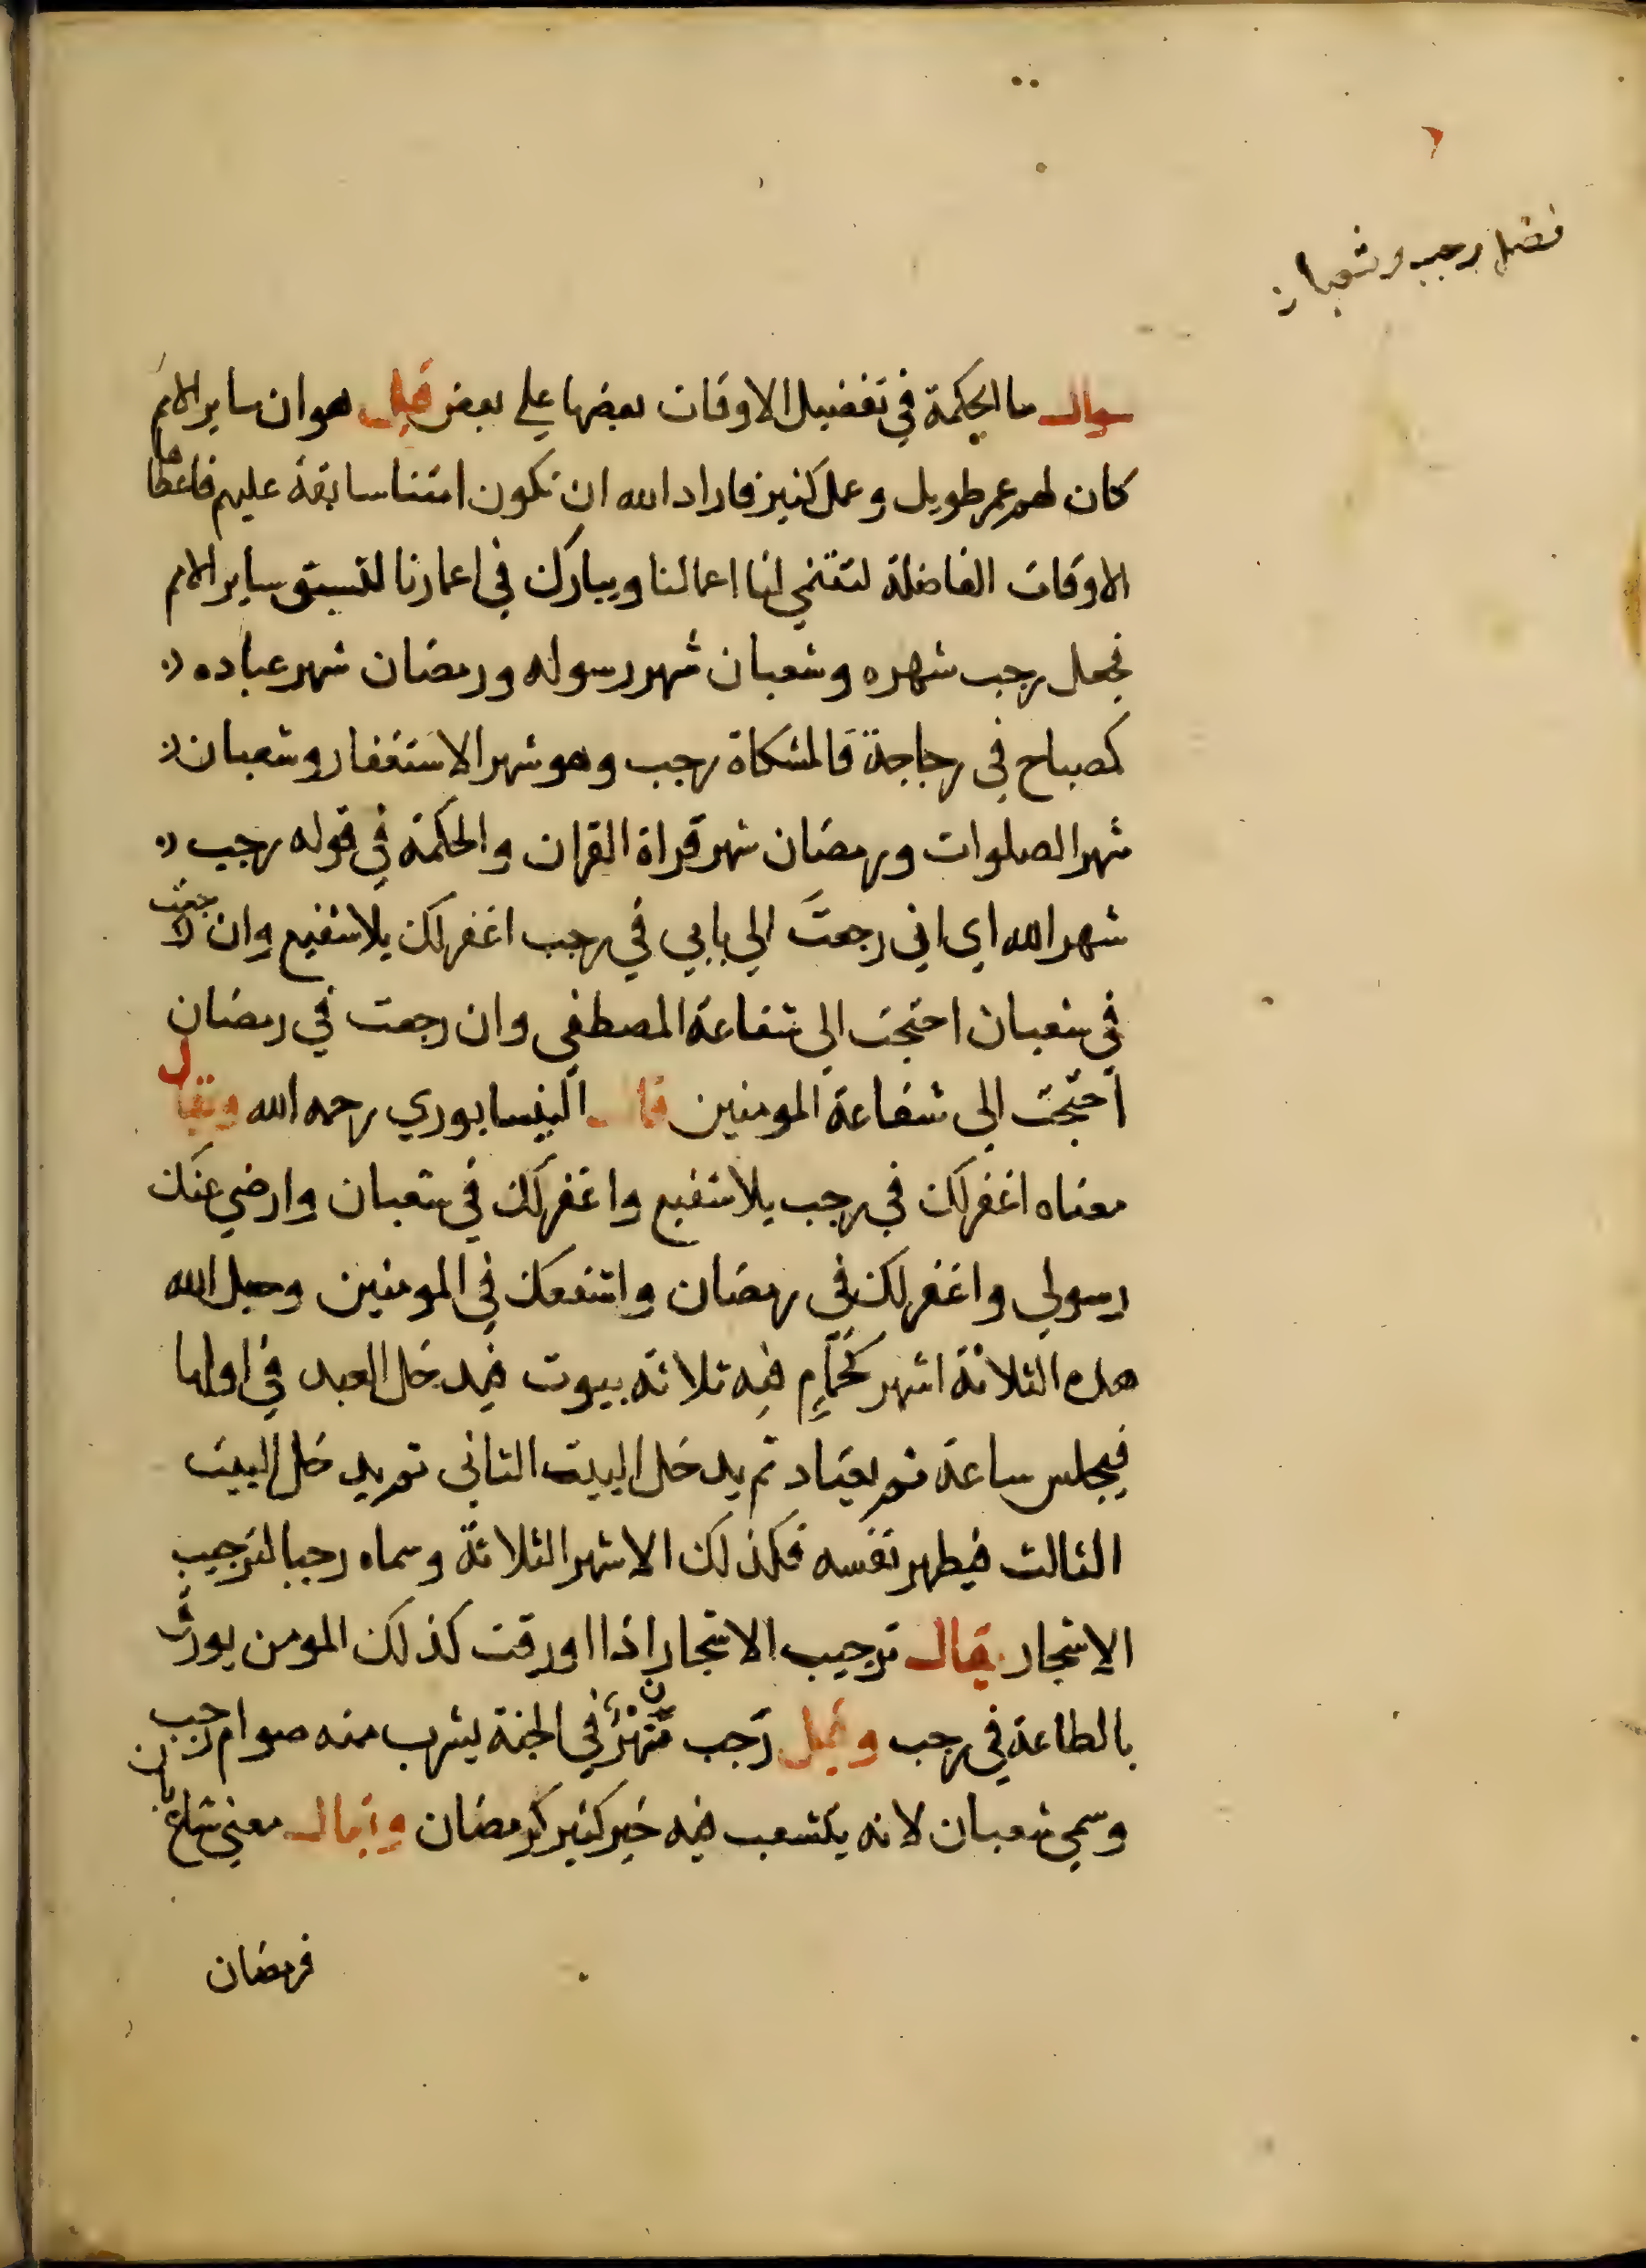 فضل رجب وشعبان
سوال ما الحكمة في تفضيل الاوقات بعضها علي بعض قيل هو ان ساير الامم
كان لهم عمر طويل وعمل كثير فاراد الله ان تكون امتنا سابقة عليهم فاعطا
الاوقات الفاضلة لتنمي لنا اعمالنا ويبارك في اعمارنا لتسبق ساير الامم
فجعل رجب شهره وشعبان شهر رسوله ورمضان شهر عباده
كمصباح في زجاجة فالمشكاة رجب وهو شهر الاستغفار وشعبان
شهر الصلوات ورمضان شهر قراة القران والحكمة في قوله رجب
شهر الله اي اني رجعت الي بابي في رجب اغفر لك بلا شفيع وان رجعت
في شعبان احتجت الي شفاعة المصطفي وان رجعت في رمضان
احتجت الي شفاعة المومنين قال النيسابوري رحمه الله ويقال
معناه اغفر لك في رجب بلا شفيع واغفر لك في شعبان وارضي عنك
رسولي واغفر لك في رمضان واشفعك في المومنين وجعل الله
هده الثلاثة اشهر كحمام فيه ثلاثة بيوت فيدخل العبد في اولها
فيجلس ساعة ثم يعتاد ثم يدخل البيت الثاني ثم يدخل البيت
الثالث فيطهر نفسه فكذلك الاشهر الثلاثة وسماه رجبا لترجيب
الاشجار يقال ترجيب الاشجار اذا اورقت كذلك المومن يورق
بالطاعة في رجب وقيل رجب نهر في الجنة يشرب منه صوام رجب
وسمي شعبان لانه يتشعب فيه خير كثير كرمضان ويقال معني شاع بان
فرمضان